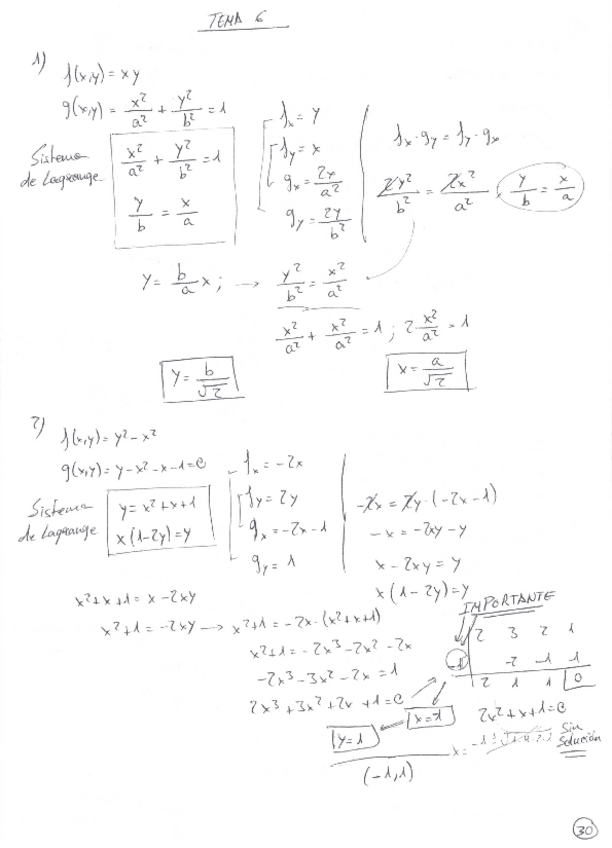 TEMA 6
1)
f(x,y) = xy
g(x,y) = x²/a² + y²/b² = 1
Sistema de Lagrange
x²/a² + y²/b² = 1
y/b = x/a
fx = y
fy = x
gx = 2x/a²
gy = 2y/b²
fx · gy = fy · gx
2y²/b² = 2x²/a² , y/b = x/a
y = b/a x ; → y²/b² = x²/a²
x²/a² + x²/a² = 1 ; 2 · x²/a² = 1
y = b/√2
x = a/√2
2)
f(x,y) = y² - x²
g(x,y) = y - x² - x - 1 = 0
Sistema de Lagrange
y = x² + x + 1
x(1 - 2y) = y
fx = -2x
fy = 2y
gx = -2x - 1
gy = 1
-2x = 2y · (-2x - 1)
-x = -2xy - y
x - 2xy = y
x(1 - 2y) = y
x² + x + 1 = x - 2xy
x² + 1 = -2xy → x² + 1 = -2x · (x² + x + 1)
x² + 1 = -2x³ - 2x² - 2x
-2x³ - 3x² - 2x = 1
2x³ + 3x² + 2x + 1 = 0
IMPORTANTE
2 3 2 1
-1 -2 -1 -1
2 1 1 0
y = 1
x = -1
(-1, 1)
2x² + x + 1 = 0
Sin solución
30